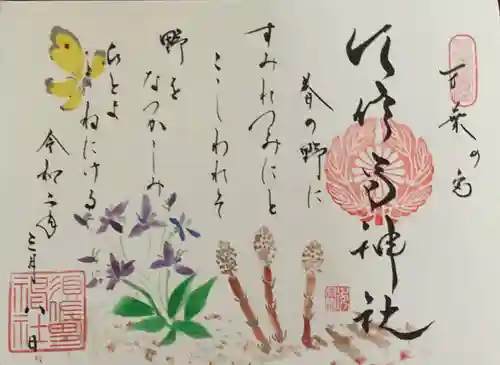 万葉の宮
神社
春の野に
すみれつみにと
こしわれそ
野を
なつかしみ
ひとよ
ねにける
令和二年三月八日